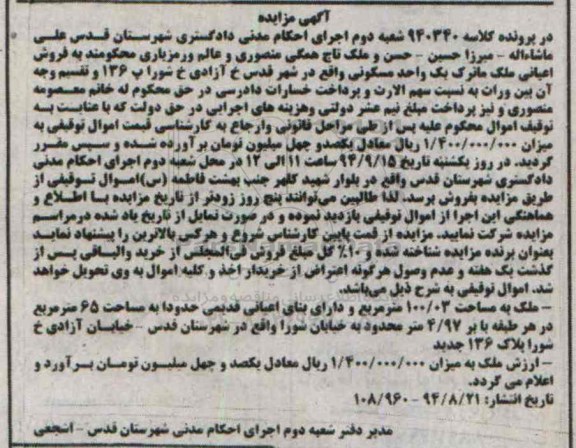 آگهی مزایده
در پرونده کلاسه ۹۴۰۳۴۰ شعبه دوم اجرای احکام مدنی دادگستری شهرستان قدس علی
ماشاءاله - میرزا حسین - حسن و ملک تاج همگی منصوری و عالم ورمزیاری محکومند به فروش
اعیانی ملک ماترک یک واحد مسکونی واقع در شهر قدس خ آزادی خ شورا پ ۱۳۶ و تقسیم وجه
آن بین وراث به نسبت سهم الارث و پرداخت خسارات دادرسی در حق محکوم له خانم معصومه
منصوری و نیز پرداخت مبلغ نیم عشر دولتی وهزینه های اجرایی در حق دولت که با عنایت به
توقیف اموال محکوم علیه پس از طی مراحل قانونی وارجاع به کارشناسی قیمت اموال توقیفی به
میزان ۱/۴۰۰/۰۰۰/۰۰۰ ریال معادل یکصدو چهل میلیون تومان برآورده شده و سپس مقرر
گردید. در روز یکشنبه تاریخ ۹۴/۹/۱۵ ساعت ۱۱ الی ۱۲ در محل شعبه دوم اجرای احکام مدنی
دادگستری شهرستان قدس واقع در بلوار شهید کلهر جنب بهشت فاطمه (س)اموال توقیفی از
طریق مزایده بفروش برسد. لذا طالبین می‌توانند پنج روز زودتر از تاریخ مزایده با اطلاع و
هماهنگی این اجرا از اموال توقیفی بازدید نموده و در صورت تمایل از تاریخ یاد شده درمراسم
مزایده شرکت نمایید. مزایده از قمت پایین کارشناس شروع و هرکس بالاترین را پیشنهاد نماید
بعنوان برنده مزایده شناخته شده و ۱۰٪ کل مبلغ فروش فی‌المجلس از خرید والباقی پس از
گذشت یک هفته و عدم وصول هرگونه اعتراض از خریدار اخذ و کلیه اموال به وی تحویل خواهد
شد. اموال توقیفی به شرح ذیل می‌باشد.
- ملک به مساحت ۱۰۰/۰۳ مترمربع و دارای بنای اعیانی قدیمی حدودا به مساحت ۶۵ مترمربع
در هر طبقه با بر ۴/۹۷ متر محدود به خیابان شورا واقع در شهرستان قدس - خیابان آزادی خ
شورا پلاک ۱۳۶ جدید
- ارزش ملک به میزان ۱/۴۰۰/۰۰۰/۰۰۰ ریال معادل یکصد و چهل میلیون تومان برآورد و
اعلام می گردد.
تاریخ انتشار: ۹۴/۸/۲۱ - ۱۰۸/۹۶۰
مدیر دفتر شعبه دوم اجرای احکام مدنی شهرستان قدس - اشجعی